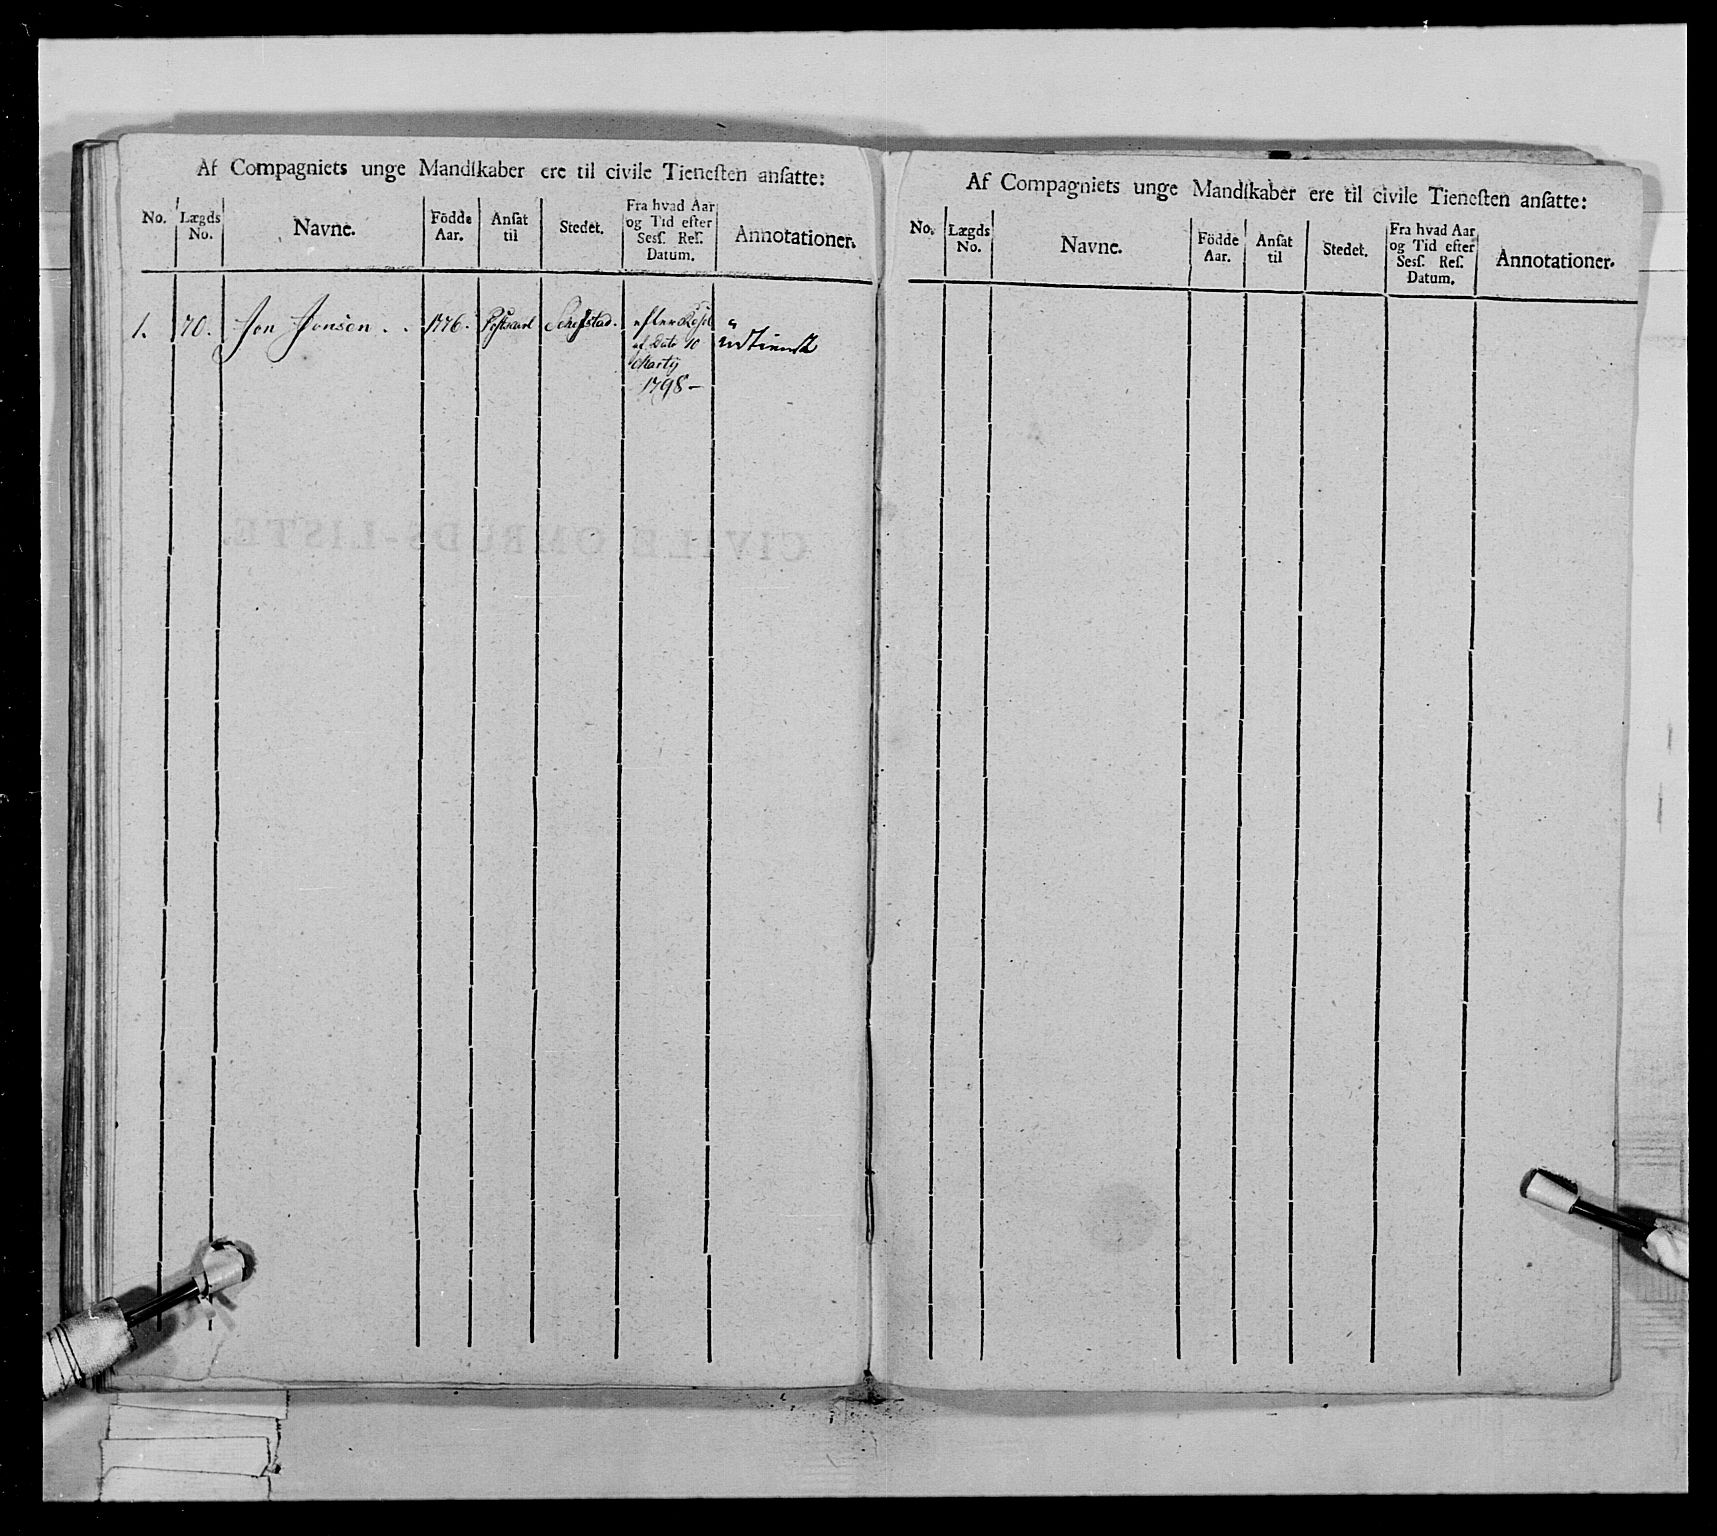 Af Compagniets unge Mandſkaber ere til civile Tieneſten anſatte:
No. Lægds No. Navne. Födde Aar. Anſat til Stedet. Fra hvad Aar og Tid efter Sesſ. Reſ. Datum. Annotationer.
1. 70. Jon Jonsen . . 1776. efter Resol
af Dato 10
Martij
1798 –
CIVILE OMBUDS-LISTE.
Af Compagniets unge Mandſkaber ere til civile Tieneſten anſatte:
No. Lægds No. Navne. Födde Aar. Anſat til Stedet. Fra hvad Aar og Tid efter Sesſ. Reſ. Datum. Annotationer.